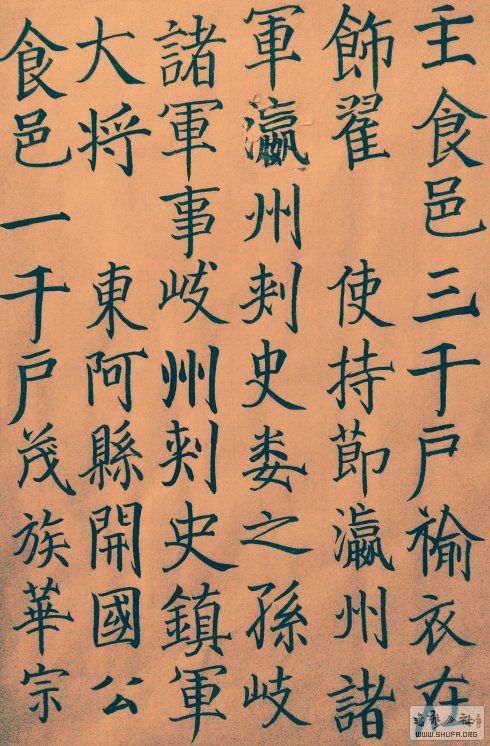 主食邑三千户褕衣在
飾翟 使持節瀛州諸
軍瀛州刺史娄之孫岐
諸軍事岐州刺史鎮軍
大将 東阿縣開國公
食邑一千户茂族華宗
WWW.SHUFA.ORG